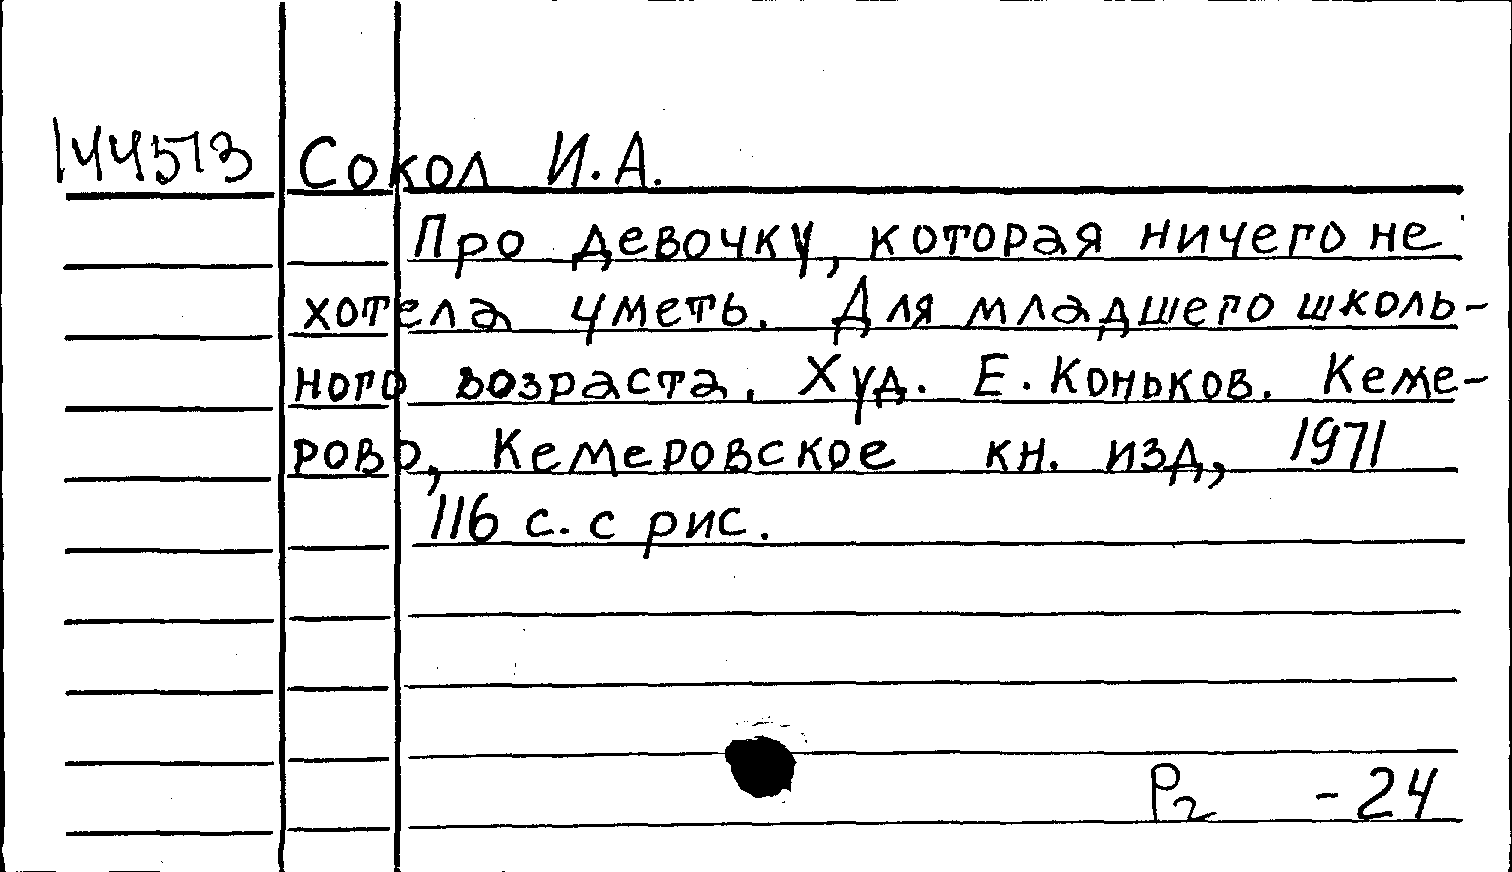 144573 Сокол И.А.
Про девочку, которая ничего не
хотела уметь. Для младшего школь-
ного возраста. Худ. Е. Коньков. Кеме-
рово, Кемеровское кн. изд, 1971
116 с. с рис.
Р2 -24